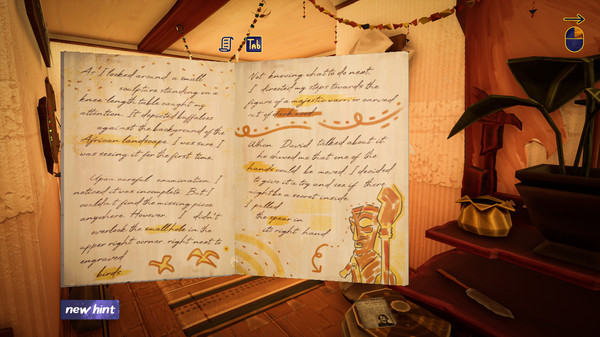 Tab
As I looked around, a small
sculpture standing on a
knee-length table caught my
attention. It depicted buffaloes
against the background of the
African landscape. I was sure I
was seeing it for the first time.
Upon careful examination, I
noticed it was incomplete. But I
couldn't find the missing piece
anywhere. However, I didn't
overlook the small hole in the
upper right corner, right next to
engraved
birds.
Not knowing what to do next,
I directed my steps towards the
figure of a majestic warrior carved
out of dark wood.
When David talked about it,
he showed me that one of the
hands could be moved. I decided
to give it a try and see if there
might be a secret inside.
I pulled
the spear in
its right hand
new hint